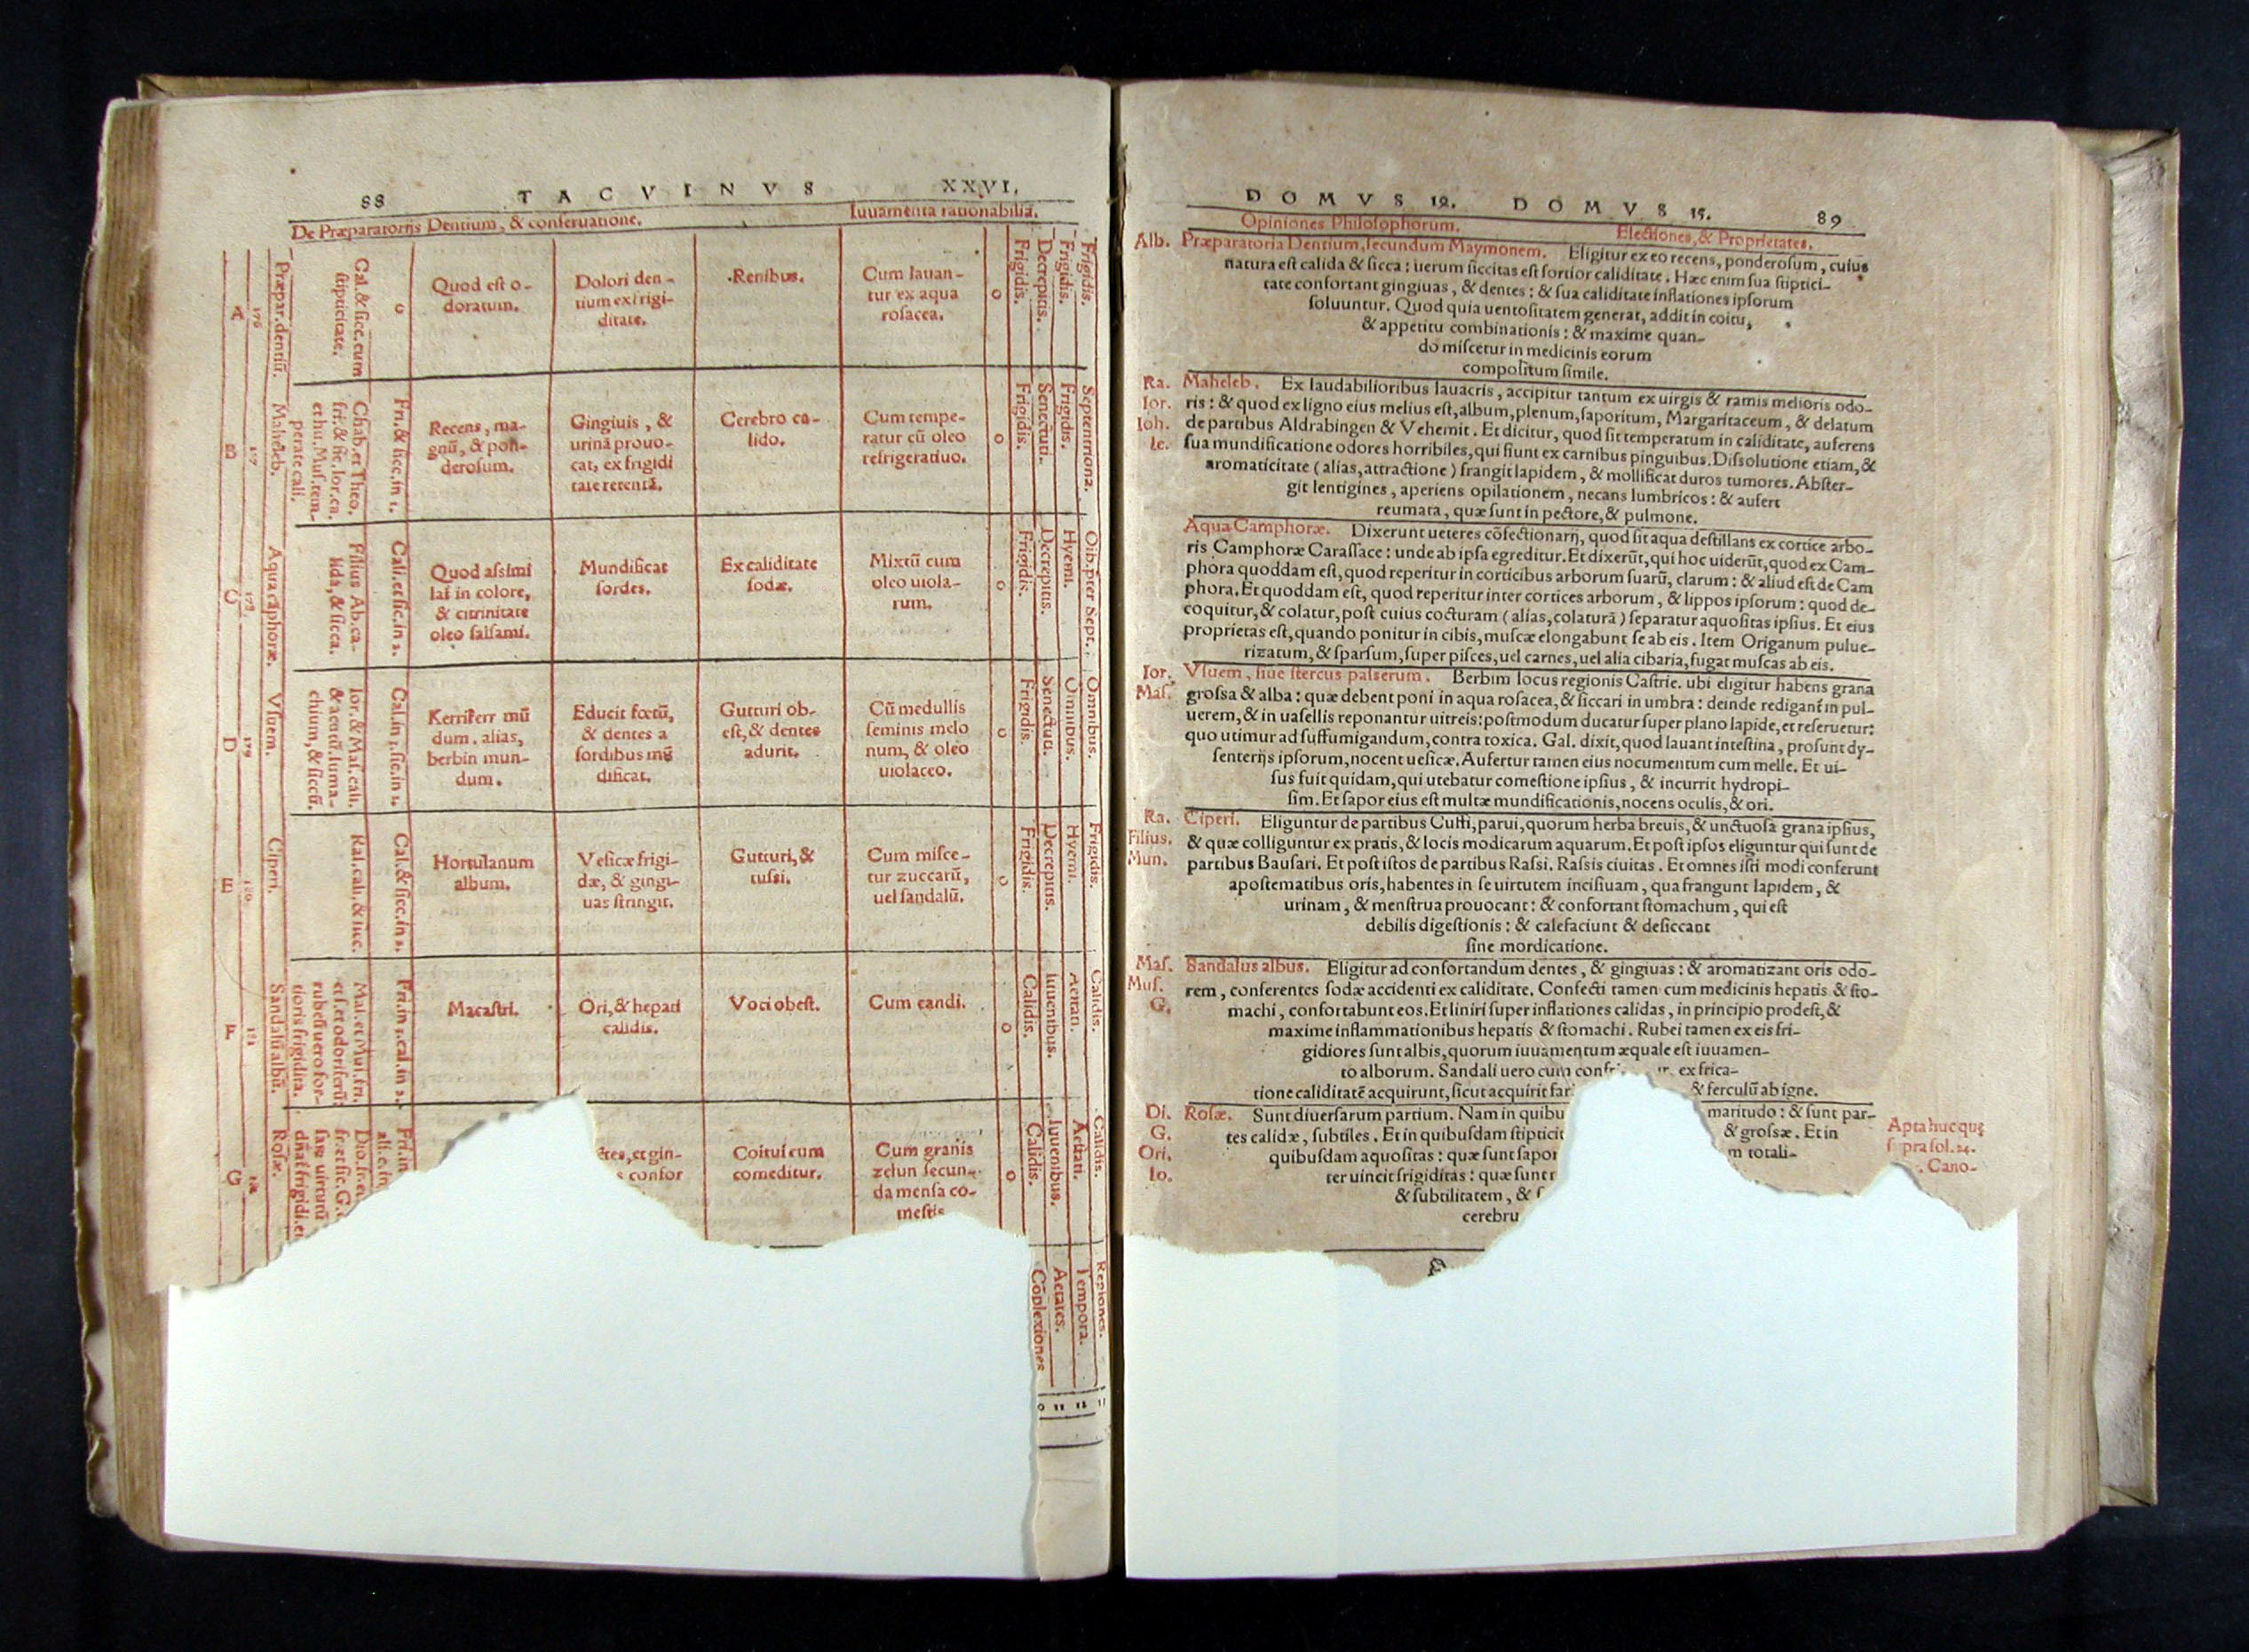 88 TACVINVS XXVI.
De Præparatorijs Dentium, & conseruatione. Iuuamenta rationabilia.
A
176
Præpar. dentiũ.
Cal. & sicc. cum
stipticitate.
o
Quod est o-
doratum.
Dolori den-
tium ex frigi-
ditate.
Renibus.
Cum lauan-
tur ex aqua
rosacea.
o
Frigidis.
Decrepitis.
Frigidis.
Frigidis.
B
Maheleb.
Chab. et Theo.
fri: & sic. Ior. ca.
et hu. Mus. tem-
perate cali.
Fri. & sicc. in 1.
Recens, ma-
gnũ, & pon-
derosum.
Gingiuis, &
urinã prouo-
cat, ex frigidi
tate retentã.
Cerebro ca-
lido.
Cum tempe-
ratur cũ oleo
refrigeratiuo.
o
Frigidis.
Senectuti.
Frigidis.
Septentriona.
C
178
Aqua cãphoræ.
Filius Ab. ca-
lida, & sicca.
Cali. et sic. in 2.
Quod assimi
lat in colore,
& citrinitate
oleo salsami.
Mundificat
sordes.
Ex caliditate
sodæ.
Mixtũ cum
oleo uiola-
rum.
o
Frigidis.
Decrepitis.
Hyemi.
Oib. pter Sept.
D
179
Vsuem.
Ior. & Mas. cali.
& acutũ. luma-
chium, & siccũ.
Cal. in 1. sic. in 1.
Kerriferr mũ
dum. alias,
berbin mun-
dum.
Educit fœtũ,
& dentes a
sordibus mũ
dificat.
Gutturi ob-
est, & dentes
adurit.
Cũ medullis
seminis melo
num, & oleo
uiolaceo.
o
Frigidis.
Senectuti.
Omnibus.
Omnibus.
E
180
Ciperi.
Ral. cali, & sicc.
Cal. & sicc. in 2.
Hortulanum
album.
Vesicæ frigi-
dæ, & gingi-
uas stringit.
Gutturi, &
tussi.
Cum misce-
tur zuccarũ,
uel sandalũ.
o
Frigidis.
Decrepitis.
Hyemi.
Frigidis.
F
181
Sandalũ albũ.
Mal. et Mus. fri.
et s. et odoriferũ:
rubesi uero for-
tioris frigidita.
Fri. in 2. cal. in 2.
Macastri.
Ori, & hepati
calidis.
Voci obest.
Cum candi.
o
Calidis.
Iuuenibus.
Aestati.
Calidis.
G
Rosæ.
Fri. in
Coitui cum
comeditur.
Cum granis
zelun secun-
da mensa co-
mestis
o
Calidis.
Iuuenibus.
Aestati.
Calidis.
Cõplexiones
Aetates.
Tempora.
Regiones.
DOMVS 12. DOMVS 15. 89
Opiniones Philosophorum. Electiones, & Proprietates.
Alb. Præparatoria Dentium, secundum Maymonem. Eligitur ex eo recens, ponderosum, cuius
natura est calida & sicca: uerum siccitas est fortior caliditate. Hæc enim sua stiptici-
tate confortant gingiuas, & dentes: & sua caliditate inflationes ipsorum
soluuntur. Quod quia uentositatem generat, addit in coitu,
& appetitu combinationis: & maxime quan-
do miscetur in medicinis eorum
compositum simile.
Ra. Maheleb. Ex laudabilioribus lauacris, accipitur tantum ex uirgis & ramis melioris odo-
Ior. ris: & quod ex ligno eius melius est, album, plenum, saporitum, Margaritaceum, & delatum
Ioh. de partibus Aldrabingen & Vehemit. Et dicitur, quod sit temperatum in caliditate, auferens
Ie. sua mundificatione odores horribiles, qui fiunt ex carnibus pinguibus. Dissolutione etiam, &
aromaticitate (alias, attractione) frangit lapidem, & mollificat duros tumores. Abster-
git lentigines, aperiens opilationem, necans lumbricos: & aufert
reumata, quæ sunt in pectore, & pulmone.
Aqua Camphoræ. Dixerunt ueteres cõfectionarij, quod sit aqua destillans ex cortice arbo-
ris Camphoræ Carassace: unde ab ipsa egreditur. Et dixerũt, qui hoc uiderũt, quod ex Cam-
phora quoddam est, quod reperitur in corticibus arborum suarũ, clarum: & aliud est de Cam
phora. Et quoddam est, quod reperitur inter cortices arborum, & lippos ipsorum: quod de-
coquitur, & colatur, post cuius cocturam (alias, colaturã) separatur aquositas ipsius. Et eius
proprietas est, quando ponitur in cibis, muscæ elongabunt se ab eis. Item Origanum pulue-
rizatum, & sparsum, super pisces, uel carnes, uel alia cibaria, fugat muscas ab eis.
Ior. Vsuem, siue stercus passerum. Berbim locus regionis Castrie. ubi eligitur habens grana
Mas. grossa & alba: quæ debent poni in aqua rosacea, & siccari in umbra: deinde redigant in pul-
uerem, & in uasellis reponantur uitreis: postmodum ducatur super plano lapide, et reseruetur:
quo utimur ad suffumigandum, contra toxica. Gal. dixit, quod lauant intestina, prosunt dy-
senterijs ipsorum, nocent uesicæ. Aufertur tamen eius nocumentum cum melle. Et ui-
sus fuit quidam, qui utebatur comestione ipsius, & incurrit hydropi-
sim. Et sapor eius est multæ mundificationis, nocens oculis, & ori.
Ra. Ciperi. Eliguntur de partibus Cuffi, parui, quorum herba breuis, & unctuosa grana ipsius,
Filius. & quæ colliguntur ex pratis, & locis modicarum aquarum. Et post ipsos eliguntur qui sunt de
Mun. partibus Bausari. Et post istos de partibus Rassi. Rassis ciuitas. Et omnes isti modi conferunt
apostematibus oris, habentes in se uirtutem incisiuam, qua frangunt lapidem, &
urinam, & menstrua prouocant: & confortant stomachum, qui est
debilis digestionis: & calefaciunt & desiccant
sine mordicatione.
Mas. Sandalus albus. Eligitur ad confortandum dentes, & gingiuas: & aromatizant oris odo-
Mus. rem, conferentes sodæ accidenti ex caliditate. Confecti tamen cum medicinis hepatis & sto-
G. machi, confortabunt eos. Et liniri super inflationes calidas, in principio prodest, &
maxime inflammationibus hepatis & stomachi. Rubei tamen ex eis fri-
gidiores sunt albis, quorum iuuamentum æquale est iuuamen-
to alborum. Sandali uero cum ex frica-
tione caliditatē acquirunt, sicut acquirit & ferculũ ab igne.
Di. Rosæ. Sunt diuersarum partium. Nam in quibu maritudo: & sunt par-
G. tes calidæ, subtiles. Et in quibusdam stipticit & grossæ. Et in
Ori. quibusdam aquositas: quæ sunt sapor m totali-
Io. ter uincit frigiditas: quæ sunt
& subtilitatem, &
cerebru
Apta huc quę
pra fol. 24.
. Cano-